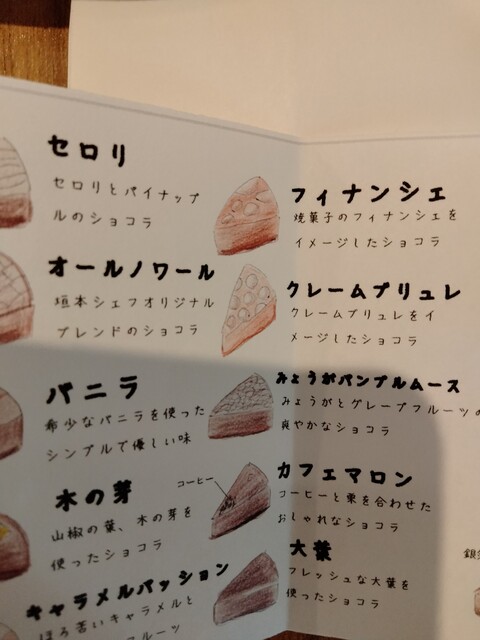 セロリ
セロリとパイナップ
ルのショコラ
オールノワール
垣本シェフオリジナル
ブレンドのショコラ
バニラ
希少なバニラを使った
シンプルで優しい味
木の芽
山椒の葉、木の芽を
使ったショコラ
キャラメルパッション
ほろ苦いキャラメルと
フルーツ
フィナンシェ
焼菓子のフィナンシェを
イメージしたショコラ
クレームブリュレ
クレームブリュレをイ
メージしたショコラ
みょうがパンプルムース
みょうがとグレープフルーツの
爽やかなショコラ
コーヒー
カフェマロン
コーヒーと栗を合わせた
おしゃれなショコラ
大葉
フレッシュな大葉を
使ったショコラ